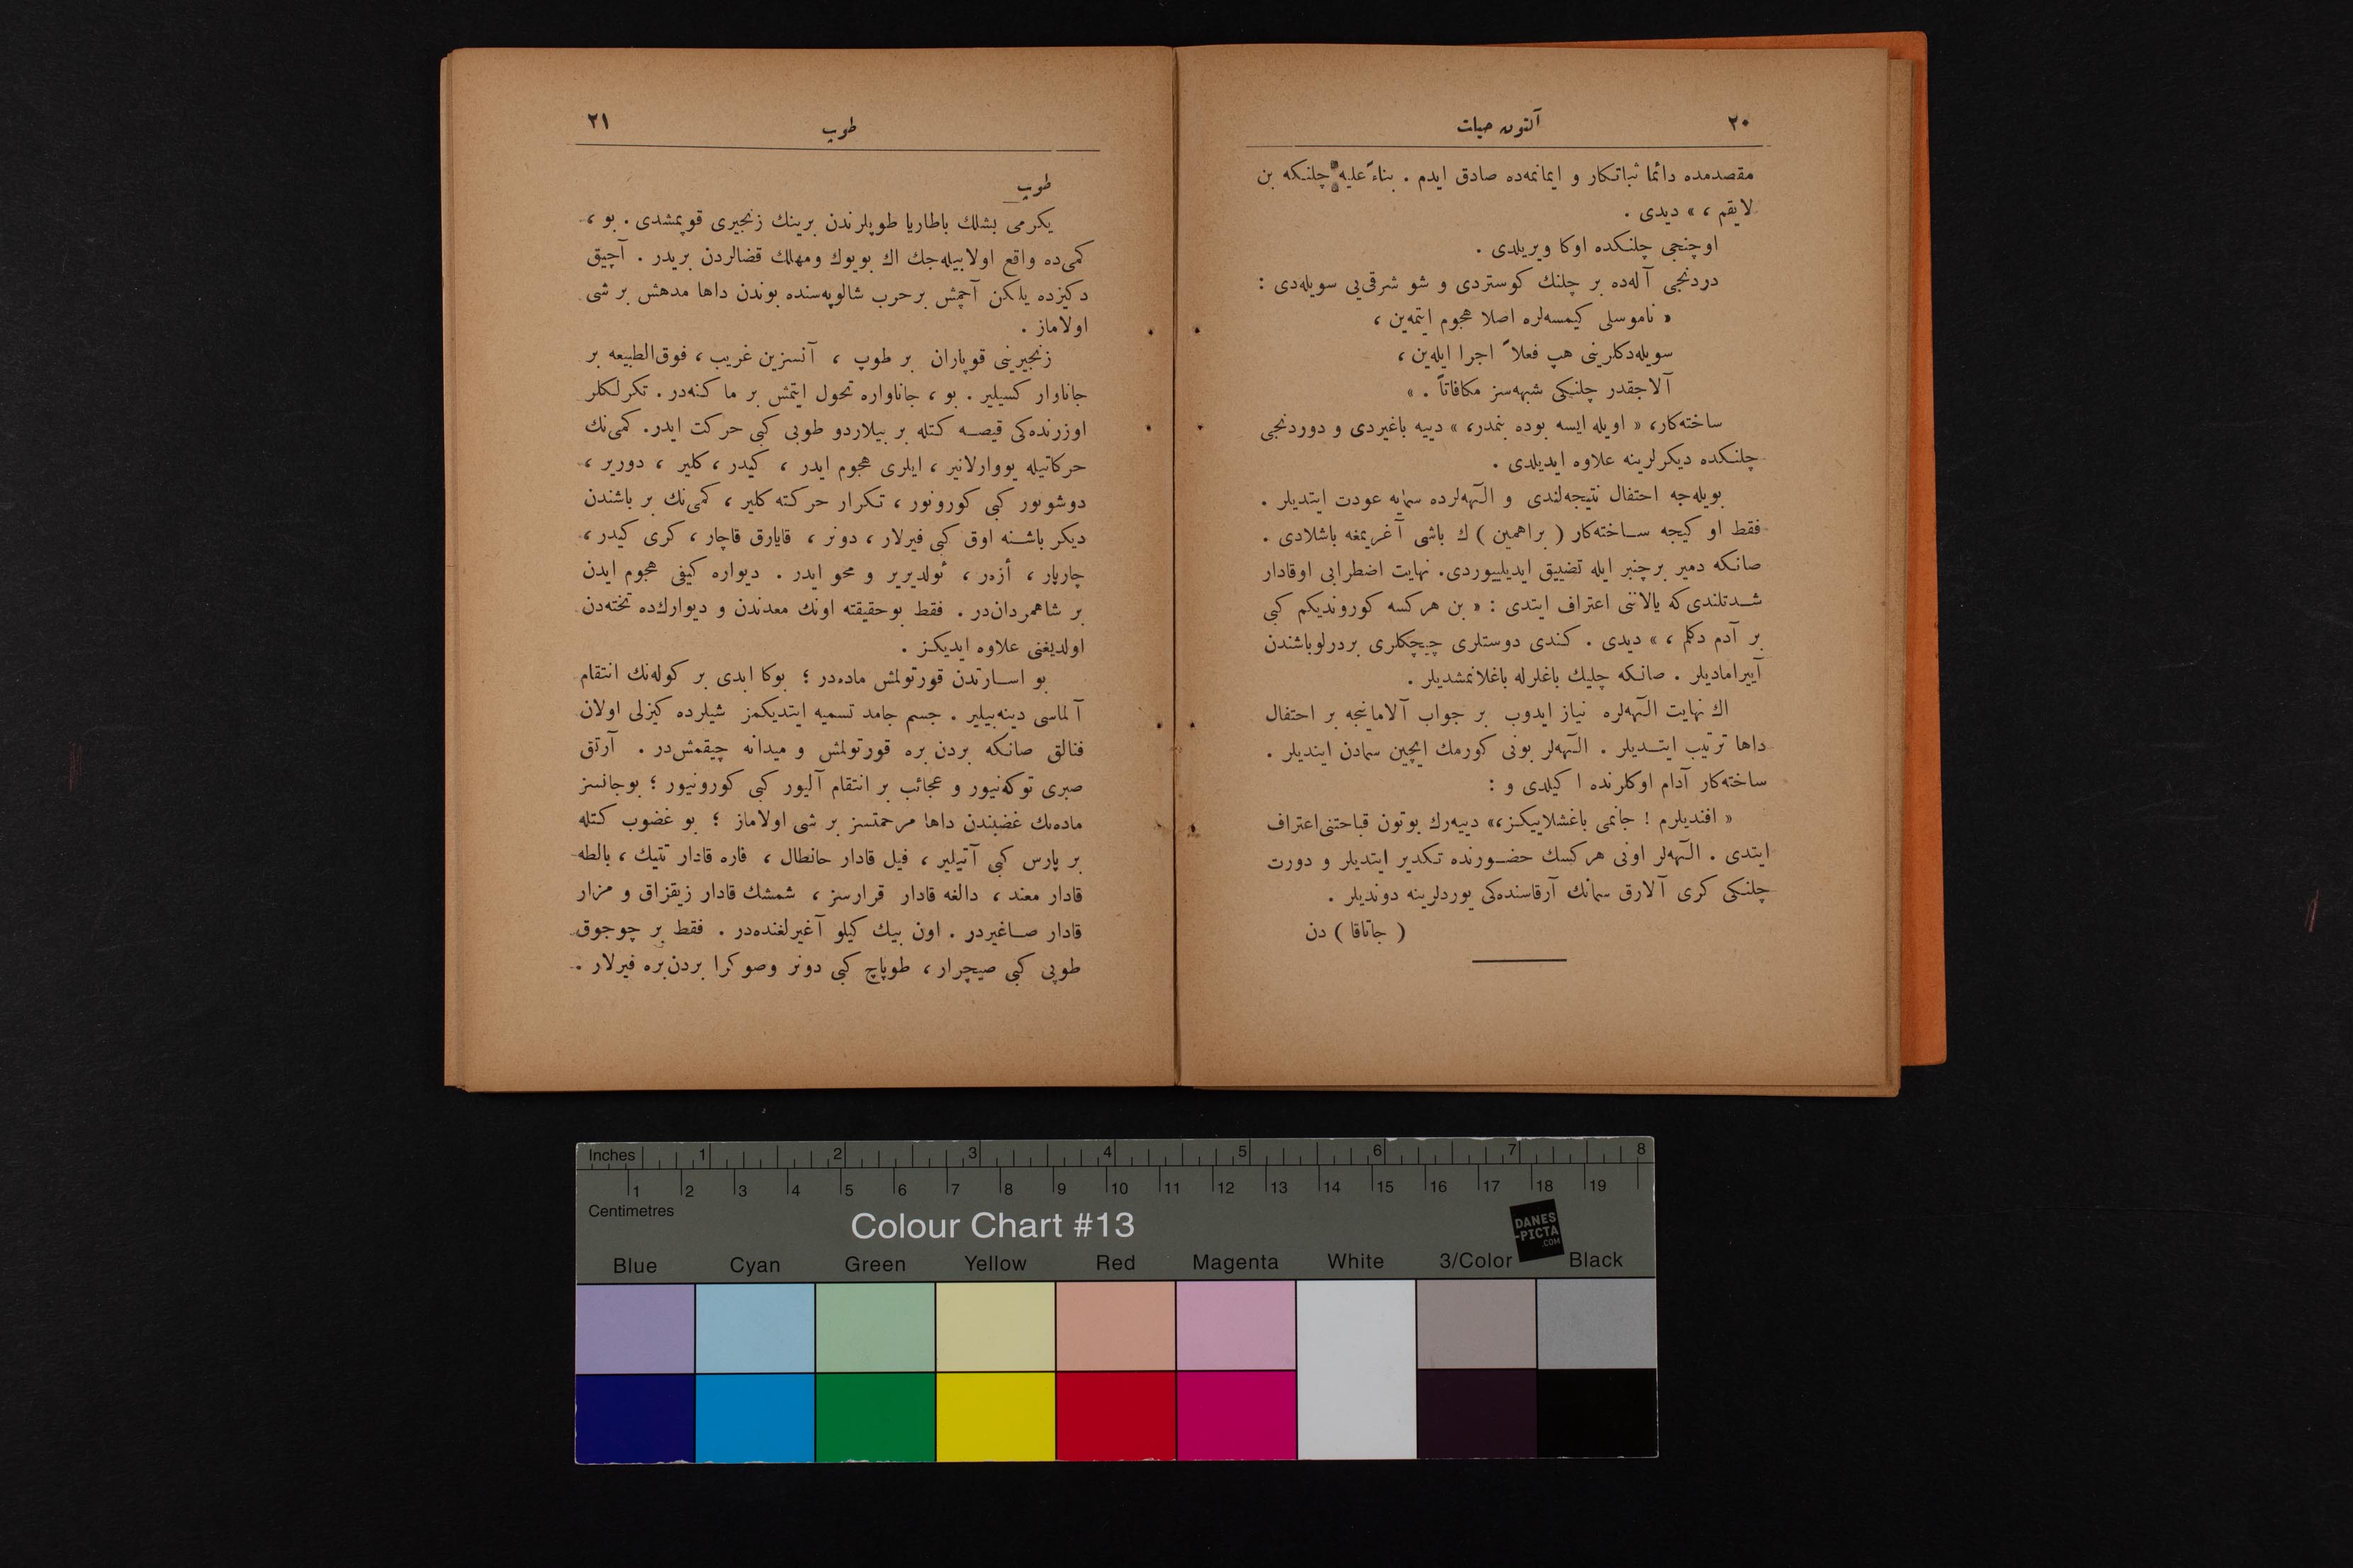 ٢٠
آلتون حیات
مقصدمده دائما ثباتكار و ایمانمه‌ده صادق ایدم . بناءً علیه چلنكه بن
لایقم ، » دیدی .
اوچنجی چلنكده اوكا ویریلدی .
دردنجی آله‌ده بر چلنك كوستردی و شو شرقی‌یی سویله‌دی :
« ناموسلی كیمسه‌لره اصلا هجوم ایتمه‌ین ،
سویله‌دكلرینی هپ فعلاً اجرا ایله‌ین ،
آلاجقدر چلنكی شبهه‌سز مكافاتاً . »
ساخته‌كار، « اویله ایسه بوده بنمدر، » دییه باغیردی و دوردنجی
چلنكده دیكرلرینه علاوه ایدیلدی .
بویله‌جه احتفال نتیجه‌لندی و الٓهه‌لرده سمایه عودت ایتدیلر .
فقط او كیجه ساخته‌كار ( براهمین ) ك باشی آغریمغه باشلادی .
صانكه دمیر برچنبر ایله تضییق ایدیلییوردی. نهایت اضطرابی اوقادار
شدتلندی‌كه یالاننی اعتراف ایتدی : « بن هركسه كوروندیكم كبی
بر آدم دكلم ، » دیدی . كندی دوستلری چیچكلری بردرلوباشندن
آییرامادیلر . صانكه چلیك باغلرله باغلانمشدیلر .
اك نهایت الٓهه‌لره نیاز ایدوب بر جواب آلامانجه بر احتفال
داها ترتیب ایتدیلر . الٓهه‌لر بونی كورمك ایچین سمادن ایندیلر .
ساخته‌كار آدام اوكلرنده اكیلدی و :
« افندیلرم ! جانمی باغشلاییكز،» دییه‌رك بوتون قباحتنی‌اعتراف
ایتدی . الٓهه‌لر اونی هركسك حضورنده تكدیر ایتدیلر و دورت
چلنكی كری آلارق سمانك آرقاسنده‌كی یوردلرینه دوندیلر .
( جاتاقا ) دن
طوپ
٢١
طوپ
یكرمی بشلك باطاریا طوپلرندن برینك زنجیری قوپمشدی . بو ،
كمی‌ده واقع اولابیله‌جك اك بویوك ومهلك قضالردن بریدر . آچیق
دكیزده یلكن آچمش برحرب شالوپه‌سنده بوندن داها مدهش بر شی
اولاماز .
زنجیرینی قوپاران بر طوپ ، آنسزین غریب ، فوق‌الطبیعه بر
جاناوار كسیلیر . بو ، جاناواره تحول ایتمش بر ماكنه‌در . تكرلكلر
اوزرنده‌كی قیصه كتله بر بیلاردو طوپی كبی حركت ایدر. كمی‌نك
حركاتیله یووارلانیر ، ایلری هجوم ایدر ، كیدر ، كلیر ، دوریر ،
دوشونور كبی كورونور ، تكرار حركته كلیر ، كمی‌نك بر باشندن
دیكر باشنه اوق كبی فیرلار ، دونر ، قایارق قاچار ، كری كیدر ،
چارپار ، أزه‌ر ، ئولدیریر و محو ایدر . دیواره كیفی هجوم ایدن
بر شاهمردان‌در . فقط بوحقیقته اونك معدندن و دیوارك‌ده تخته‌دن
اولدیغنی علاوه ایدیكز .
بو اسارتدن قورتولمش ماده‌در ؛ بوكا ابدی بر كوله‌نك انتقام
آلماسی دینه‌بیلیر . جسم جامد تسمیه ایتدیكمز شیلرده كیزلی اولان
فنالق صانكه بردن بره قورتولمش و میدانه چیقمش‌در . آرتق
صبری توكه‌نیور و عجائب بر انتقام آلیور كبی كورونیور ؛ بوجانسز
ماده‌نك غضبندن داها مرحمتسز بر شی اولاماز ؛ بو غضوب كتله
بر پارس كبی آتیلیر ، فیل قادار حانطال ، فاره قادار تتیك ، بالطه
قادار معند ، دالغه قادار قرارسز ، شمشك قادار زیقزاق و مزار
قادار صاغیردر . اون بیك كیلو آغیرلغنده‌در . فقط بر چوجوق
طوپی كبی صیچرار ، طوپاچ كبی دونر وصوكرا بردن‌بره فیرلار .
Inches 1 2 3 4 5 6 7 8
1 2 3 4 5 6 7 8 9 10 11 12 13 14 15 16 17 18 19
Centimetres
Colour Chart #13
DANES
-PICTA
.COM
Blue Cyan Green Yellow Red Magenta White 3/Color Black